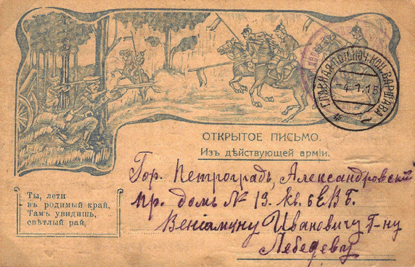 ОТКРЫТОЕ ПИСЬМО.
Изъ дѣйствующей арміи.
Гор. Петроградъ, Александровскій
пр. домъ № 13. кв. 5
Веніамину Ивановичу Г-ну
Лебедеву
Ты, лети
въ родимый край,
Тамъ увидишь,
свѣтлый рай,
-4.1.15